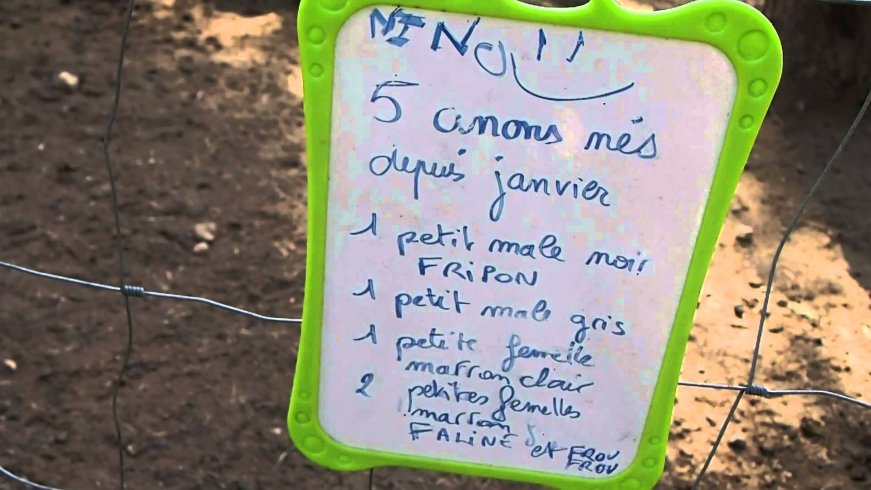 NINO !!
5 anons nés
depuis janvier
1 petit male noir
FRIPON
1 petit male gris
1 petite femelle
marron clair
2 petites femelles
marron
FALINE et FROU
FROU